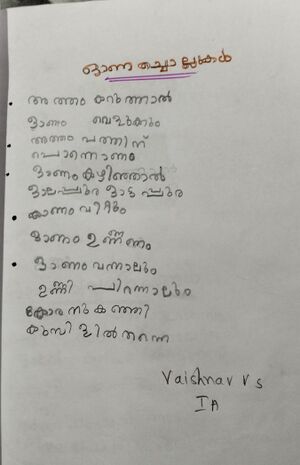 ഓണ ച്ചൊല്ലുകൾ
അത്തം കറുത്താൽ
ഓണം വെളുക്കും
അത്തം പത്തിന്
പൊന്നോണം
ഓണം കഴിഞ്ഞാൽ
ഓലപ്പുര ഓട്ടപ്പുര
കാണം വിറ്റും
ഓണം ഉണ്ണണം
ഓണം വന്നാലും
ഉണ്ണി പിറന്നാലും
കോരനു കഞ്ഞി
കുമ്പിളിൽ തന്നെ
Vaishnav V S
I A